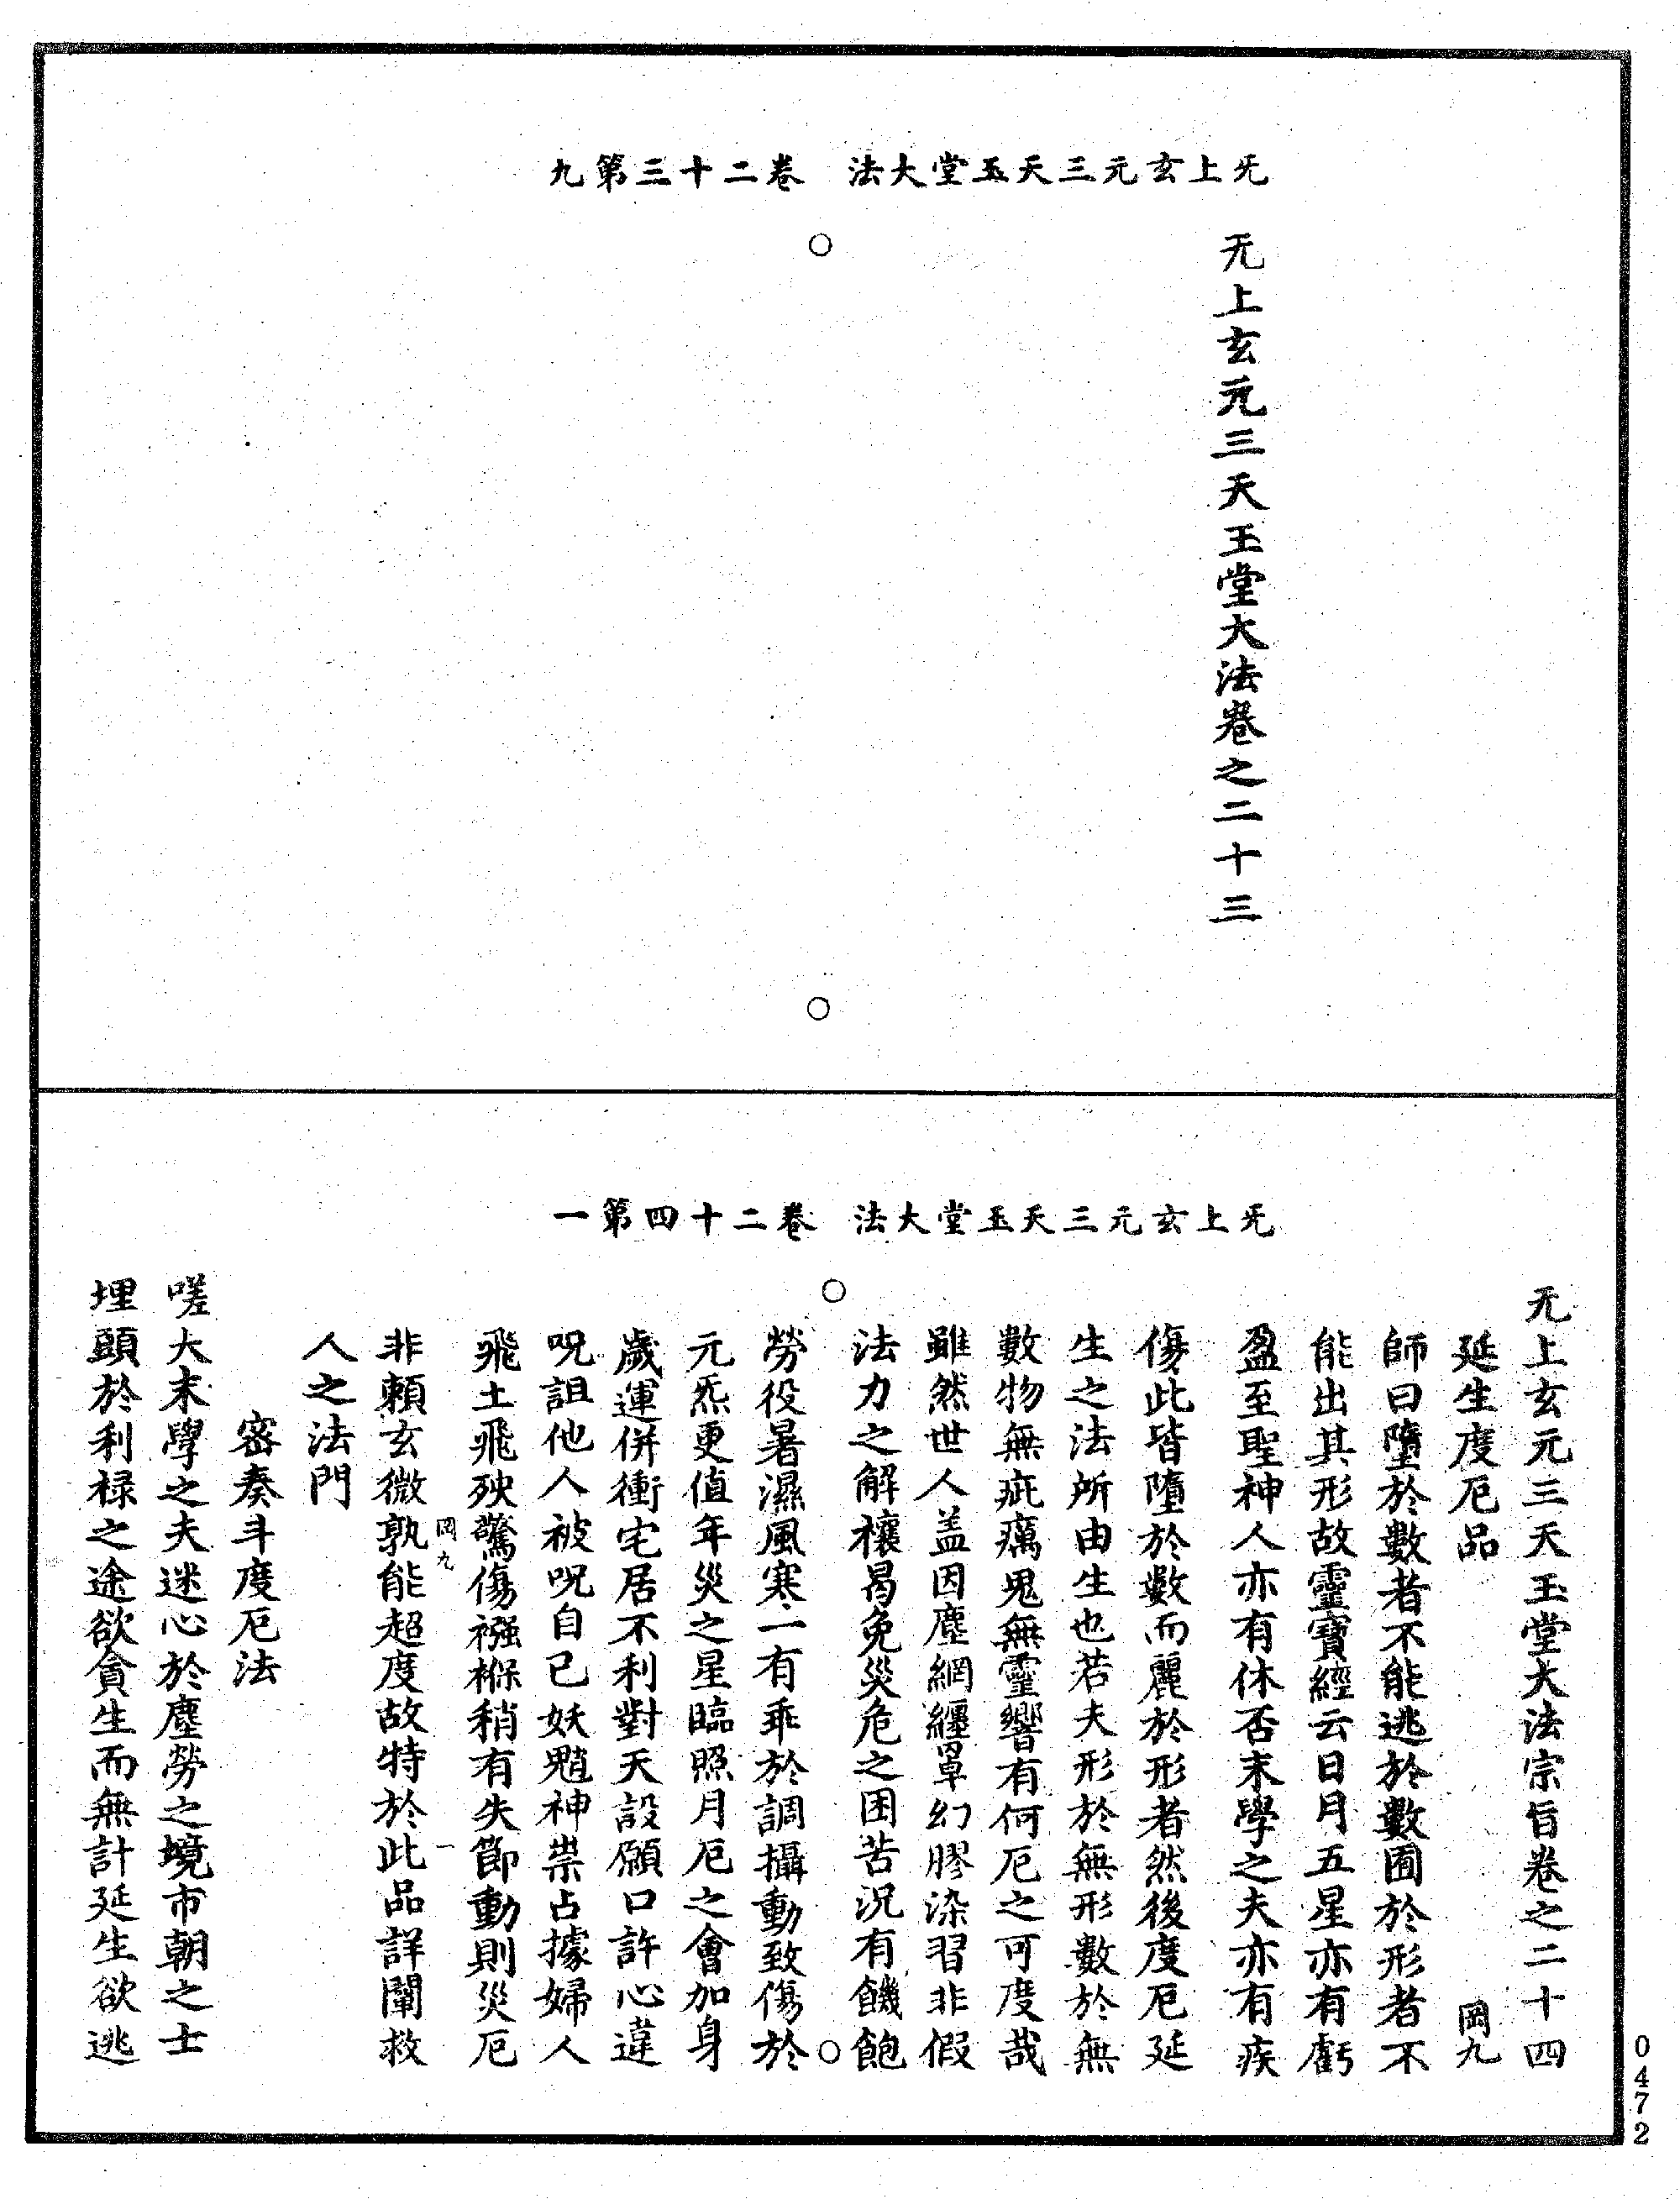 无上玄元三天玉堂大法　卷二十三第九
无上玄元三天玉堂大法卷之二十三
无上玄元三天玉堂大法　卷二十四第一
无上玄元三天玉堂大法宗旨卷之二十四
延生度厄品　岡九
師曰墮於數者不能逃於數囿於形者不
能出其形故靈寶經云日月五星亦有虧
盈至聖神人亦有休否末學之夫亦有疾
傷此皆墮於數而麗於形者然後度厄延
生之法所由生也若夫形於無形數於無
數物無疵癘鬼無靈響有何厄之可度哉
雖然世人盖因塵網纏罩幻膠染習非假
法力之解禳曷免災危之困苦況有饑飽
勞役暑濕風寒一有乖於調攝動致傷於
元炁更值年災之星臨照月厄之會加身
歲運併衝宅居不利對天設願口許心違
呪詛他人被呪自己妖魈神祟占據婦人
飛土飛殃驚傷襁褓稍有失節動則災厄
岡九　一
非賴玄微孰能超度故特於此品詳闡救
人之法門
密奏斗度厄法
嗟大末學之夫迷心於塵勞之境市朝之士
埋頭於利禄之途欲貪生而無計延生欲逃
0472